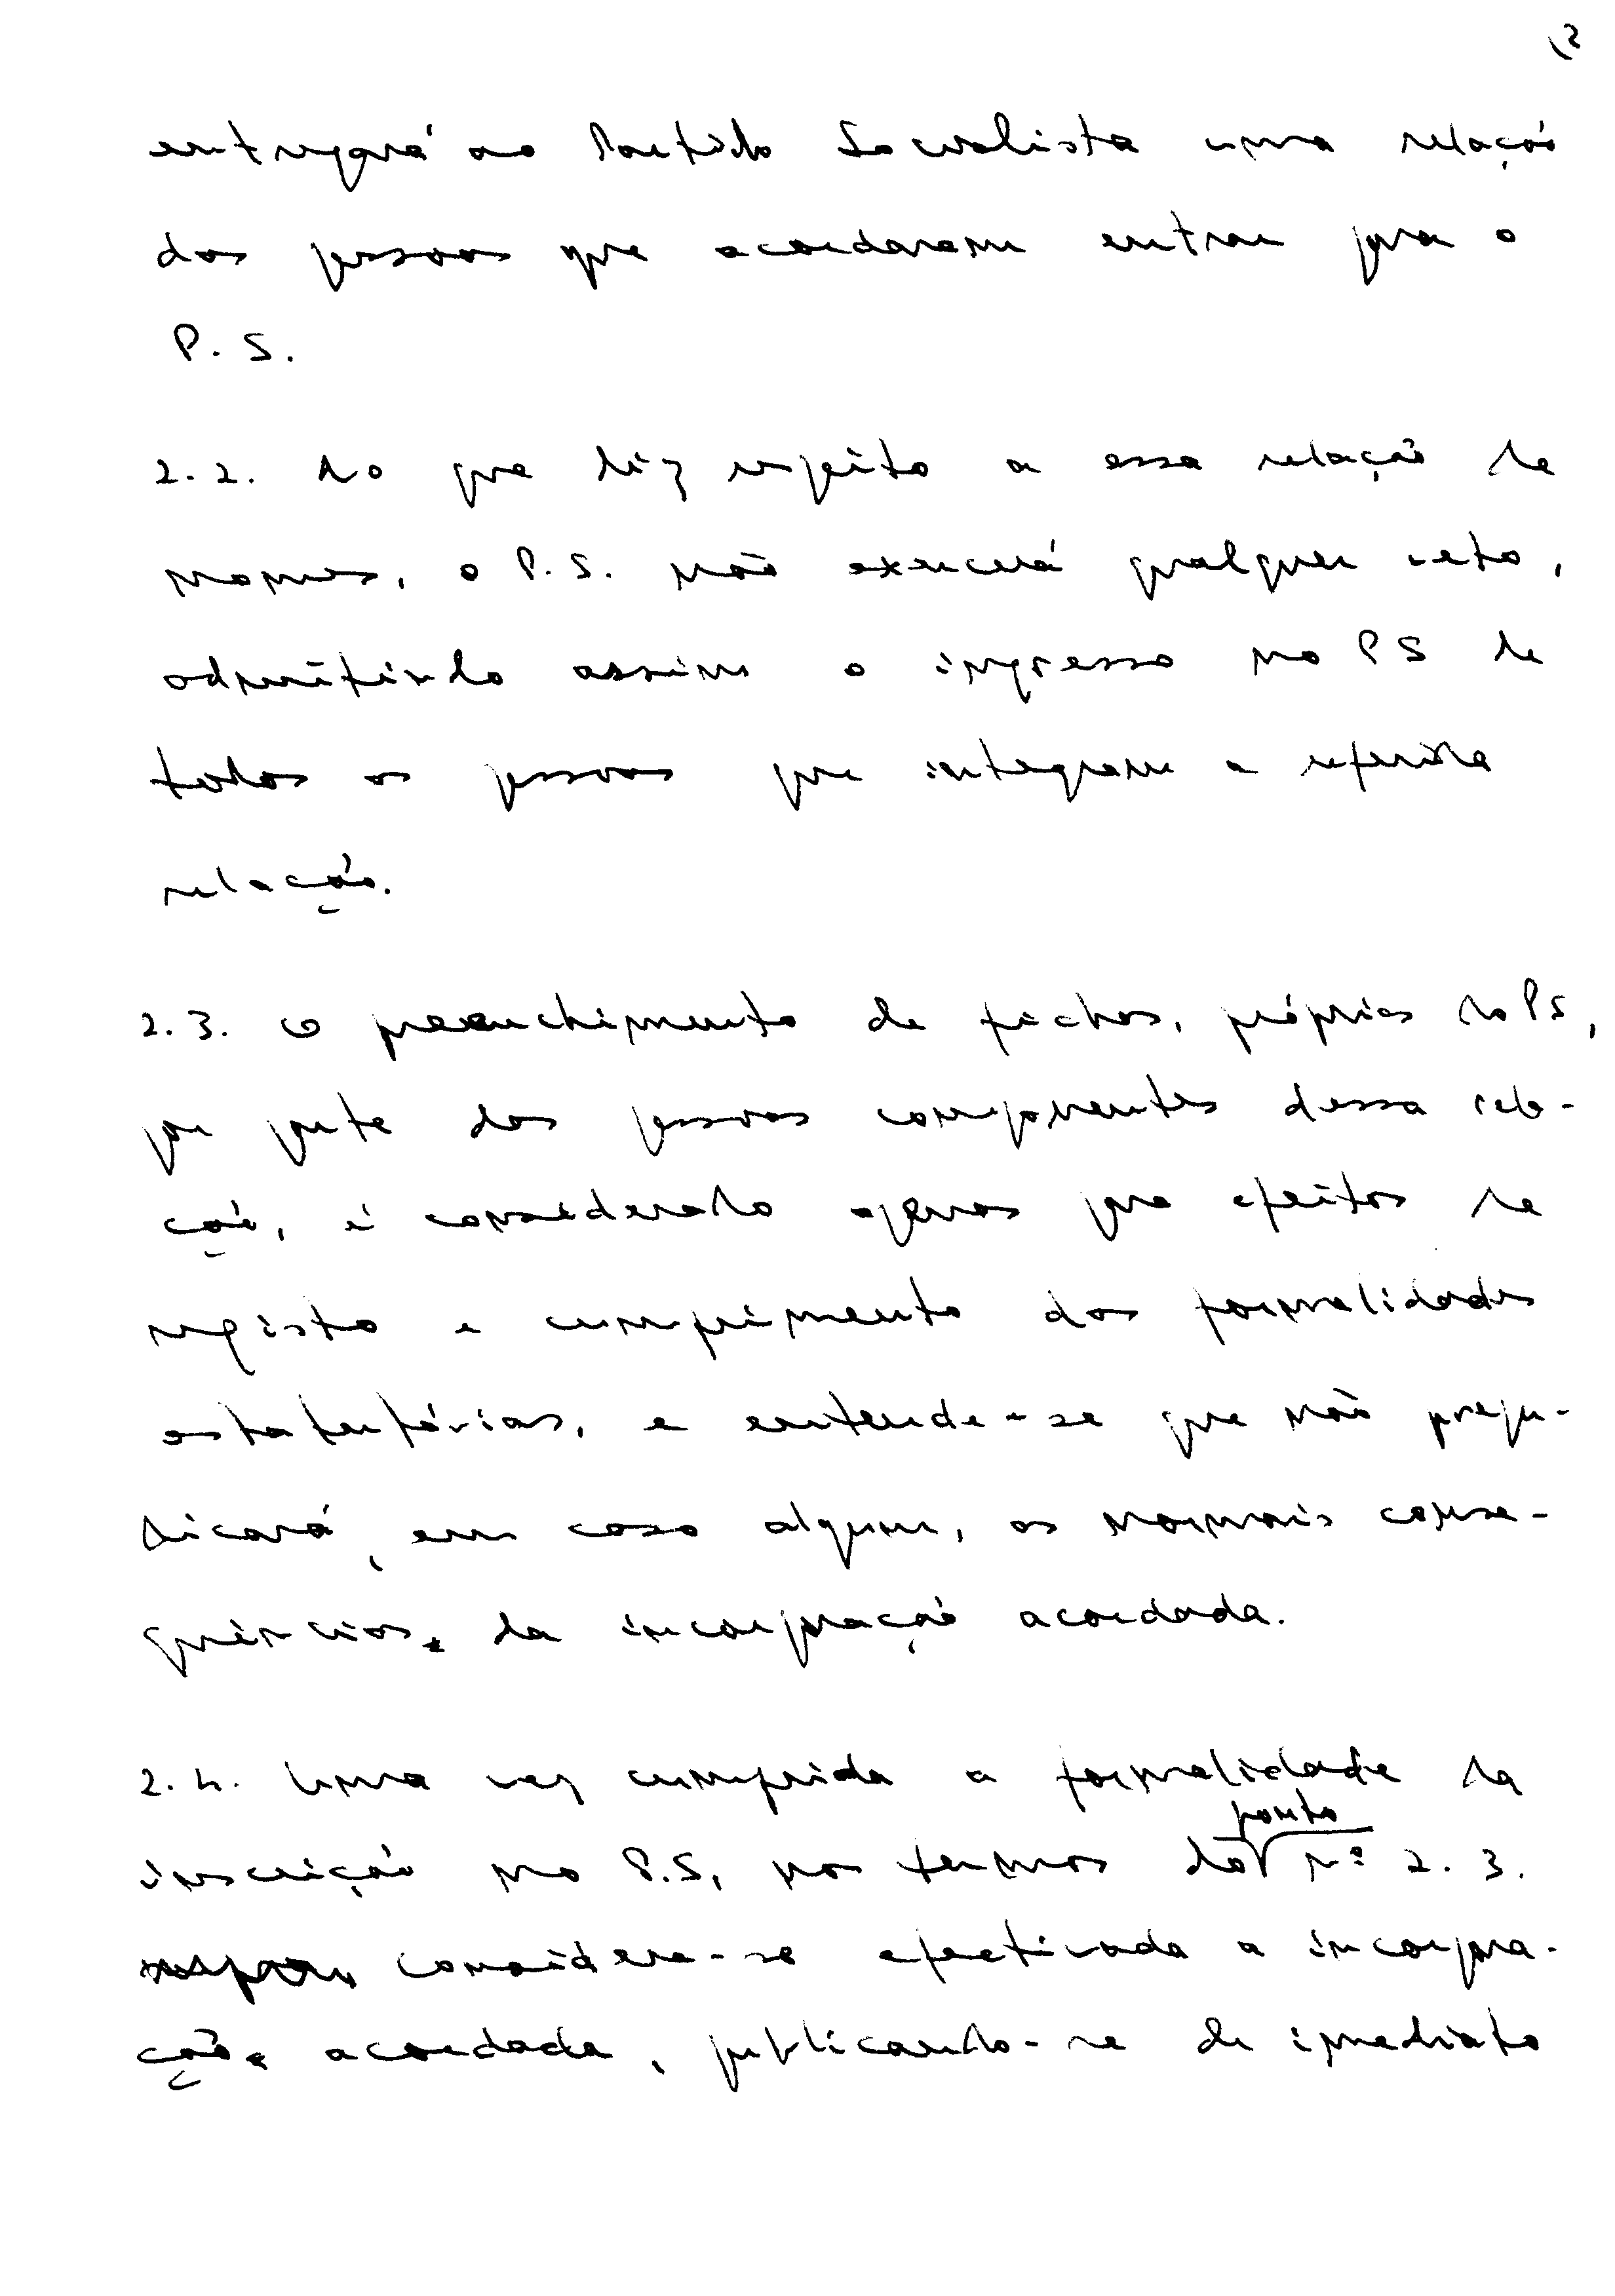 entregará ao Partido Socialista uma relação
das pessoas que acordaram entrar para o
P. S.
2.2. No que diz respeito a essa relação de
nomes, o P. S. não exercerá qualquer veto,
admitindo assim o ingresso no PS de
todas as pessoas que integram a referida
relação.
2.3. O preenchimento de fichas, próprias do PS,
por parte das pessoas componentes dessa rela-
ção, é considerado apenas para efeitos de
registo e cumprimento das formalidades
estatutárias, e entende-se que não preju-
dicará, em caso algum, as normais conse-
quências da incorporação acordada.
2.4. Uma vez cumprida a formalidade da
ponto
inscrição no P.S, nos termos do nº 2.3.
considera-se efectivada a incorpora-
ção acordada, publicando-se de imediato